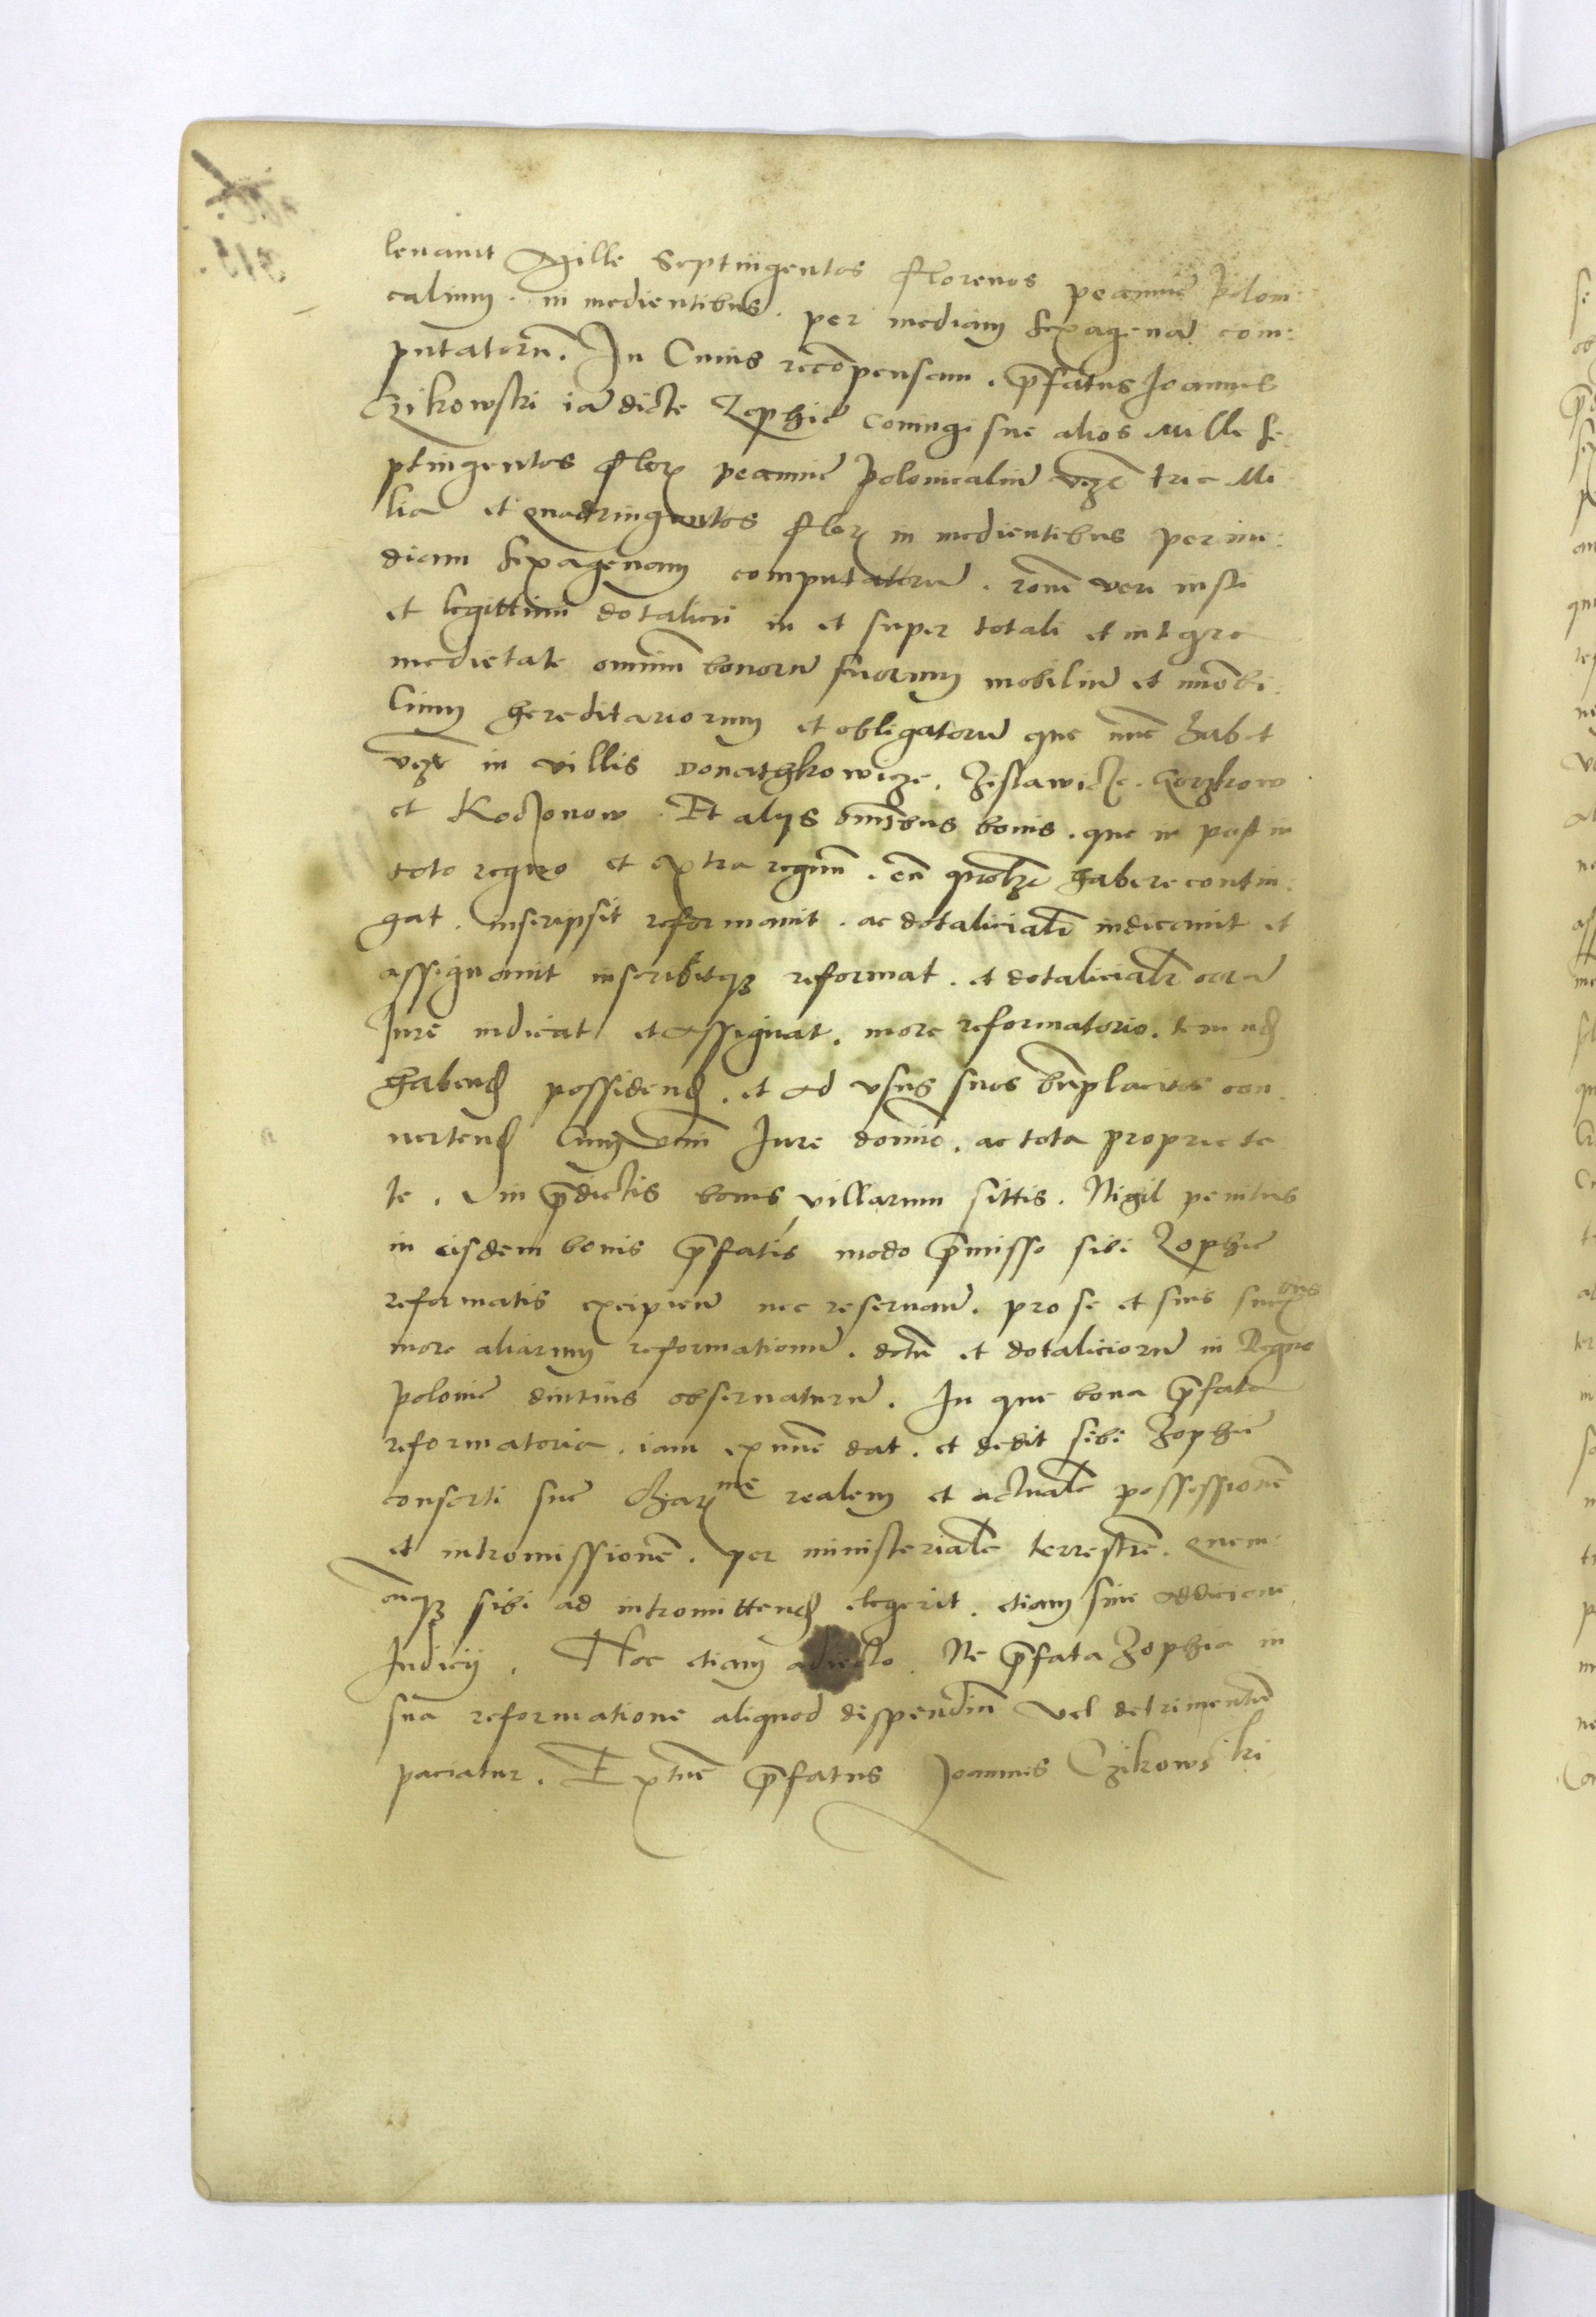 leuauit Mille Septingentos florenos pecunie Poloni:
calium. in medientibus. per mediam sexagenā com:
putatorū. In Cuius recōpensam. p̄fatus Joannes
Czikowski iā dicte Zophie coniugi sue alios Mille se:
ptingentos flor pecunie Polonicaliū vz̄ tria Mi
lia et quadringentos flor in medientibus per me:
diam sexagenam computatorū. rōne veri iusti
et legittimi dotalicii in et super totali et integra
medietate omniū bonorū suorum mobiliū et īmobi:
lium hereditariorum et obligatorū que nūc habet
vz̄ in villis Donathkowicze. Zeslawicze. Gorzkow
et Koczonow. Et alijs om̄ibus bonis. que in post in
toto regno et extra regnū. eū quolz̄ habere contin:
gat. inscripsit reformauit. ac dotalicialr̄ indicauit et
assignauit inscribitqz reformat. et dotalicialr̄
Jure indicat et assignat. more reformatorio. tenend
habend possidend. et ad vsus suos bn̄placitos con:
uertend Cum om̄i Jure domīo. ac tota proprieta
te. in p̄dictis bonis villarum sittis. Nihil penitus
in eisdem bonis p̄fatis modo p̄misso sibi Zophie
reformatis excipien̄ nec reseruan̄. pro se et suis succ̄oribus
more aliarum reformationū. dotū et dotaliciorū in Regno
polonie diutius obseruatum. In que bona p̄fata
reformatoria. iam ex nūc dat. et dedit sibi Zophie
consorti sue Char^me realem et actualē possessionē
et intromissionē. per ministerialē terrestrē. quem:
cūqz sibi ad intromittend elegerit. etiam sine addicione
Judicij. Hoc etiam adiecto. Ne p̄fata Zophia in
sua reformatione aliquod dispendiū vel detrimentū
paciatur. Extūc p̄fatus Joannes Czikowski